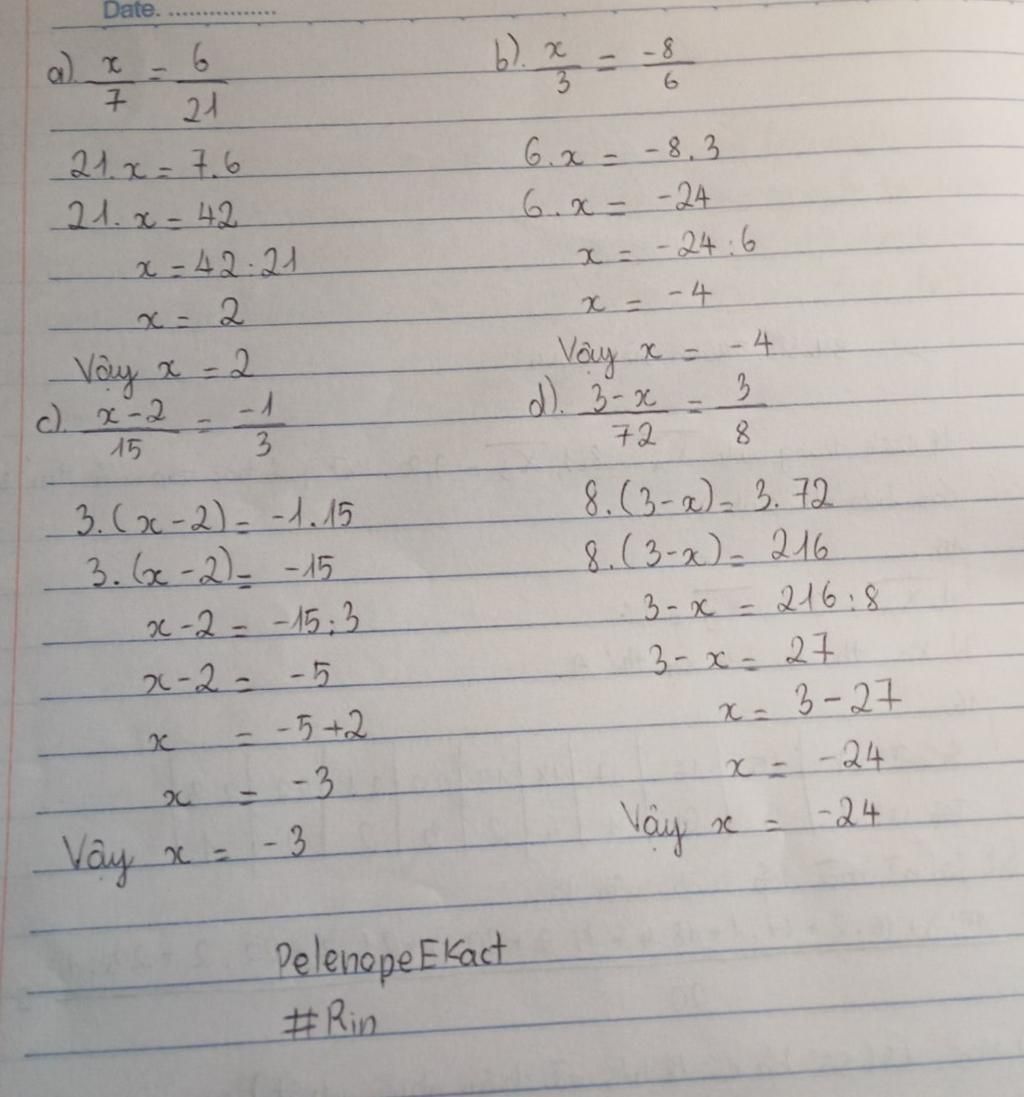 Date. ................
a) x/7 = 6/21
21.x = 7.6
21.x = 42
x = 42:21
x = 2
Vậy x = 2
b). x/3 = -8/6
6.x = -8.3
6.x = -24
x = -24:6
x = -4
Vậy x = -4
c). x-2/15 = -1/3
3.(x-2) = -1.15
3.(x-2) = -15
x-2 = -15:3
x-2 = -5
x = -5+2
x = -3
Vậy x = -3
d). 3-x/72 = 3/8
8.(3-x) = 3.72
8.(3-x) = 216
3-x = 216:8
3-x = 27
x = 3-27
x = -24
Vậy x = -24
PelenopeEKact
#Rin